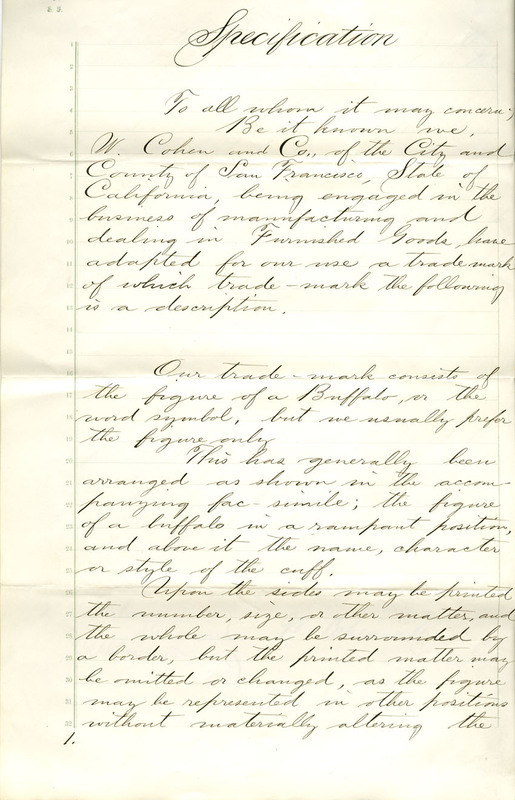 Specification
To all whom it may concern;
Be it known we,
W. Cohen and Co., of the City and
County of San Francisco, State of
California, being engaged in the
business of manufacturing and
dealing in Furnished Goods, have
adapted for our use a trademark
of which trade-mark the following
is a description.
Our trade-mark consists of
the figure of a Buffalo, or the
word symbol, but we usually prefer
the figure only
This has generally been
arranged as shown in the accom-
panying fac-simile; the figure
of a buffalo in a rampant position,
and above it the name, character
or style of the cuff.
Upon the sides may be printed
the number, size, or other matter, and
the whole may be surrounded by
a border, but the printed matter may
be omitted or changed, as the figure
may be represented in other positions
without materially altering the
1.